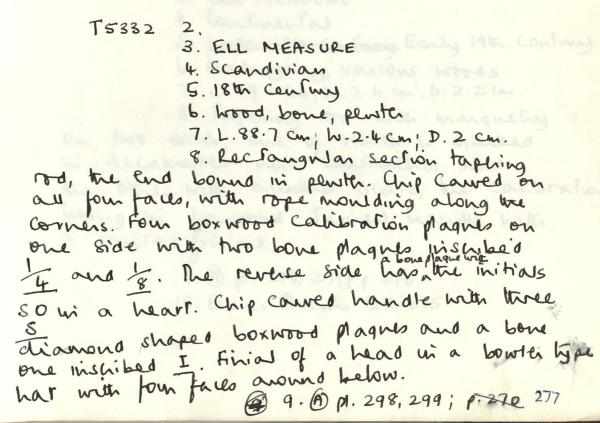 T5332 2.
3. ELL MEASURE
4. Scandivian
5. 18th Century
6. Wood, bone, pewter
7. L. 88.7 cm; W. 2.4 cm; D. 2 cm.
8. Rectangular section tapering
rod, the end bound in pewter. Chip carved on
all four faces, with rope moulding along the
corners. Four boxwood calibration plaques on
one side with two bone plaques inscribed
1/4 and 1/8. The reverse side has a bone plaque with the initials
SO in a heart. Chip carved handle with three
S
diamond shaped boxwood plaques and a bone
one inscribed I. Finial of a head in a bowler type
hat with four faces around below.
9. A pl. 298, 299; p. 270 277